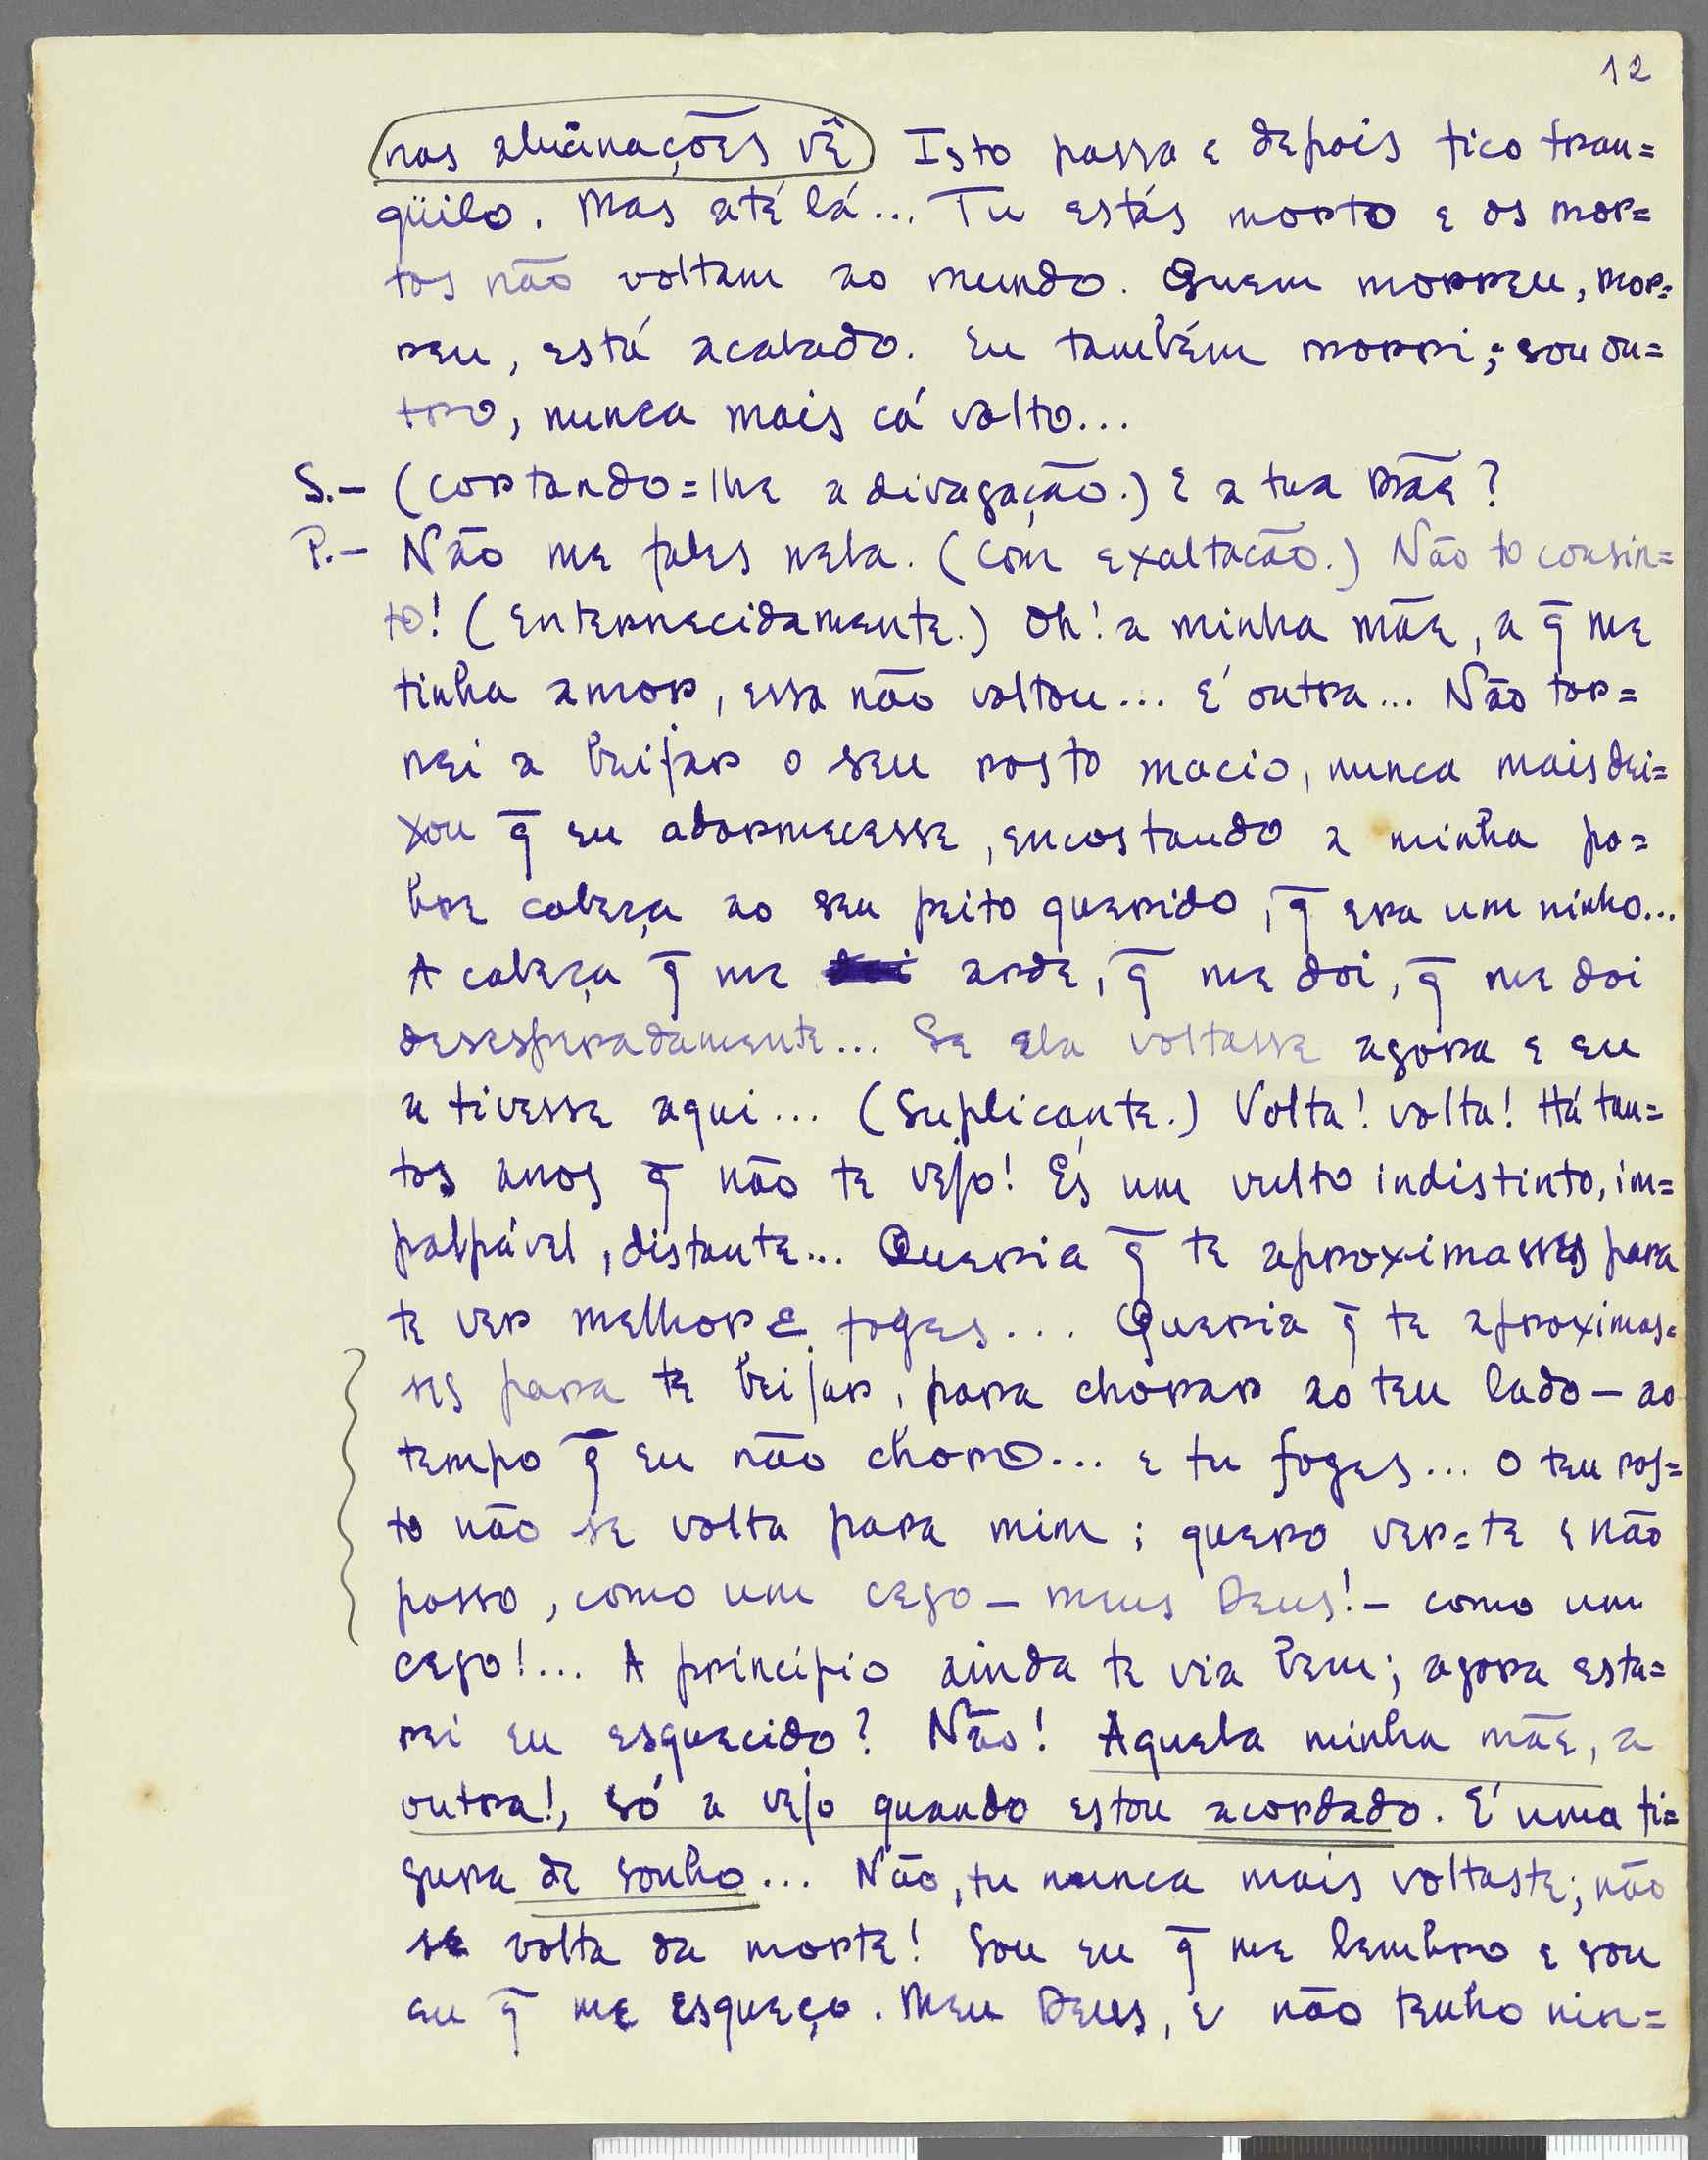 12
nas alucinações vê) Isto passa e depois fico tran=
qüilo. Mas até lá... Tu estás morto e os mor=
tos não voltam ao mundo. Quem morreu, mor=
reu, está acabado. Eu também morri; sou ou=
tro, nunca mais cá volto...
S.— (cortando=lhe a divagação.) E a tua mãe?
P.— Não me fales nela. (Com exaltacão.) Não to consin=
to! (Enternecidamente.) Oh! a minha mãe, a q̄ me
tinha amor, essa não voltou... É outra... Não tor=
nei a beijar o seu rosto macio, nunca mais dei=
xou q̄ eu adormecesse, encostando a minha po=
bre cabeça ao seu peito querido, q̄ era um ninho...
A cabeça q̄ me arde, q̄ me doi, q̄ me doi
desesperadamente... Se ela voltasse agora e eu
a tivesse aqui... (Suplicante.) Volta! volta! Há tan=
tos anos q̄ não te vejo! És um vulto indistinto, im=
palpável, distante... Queria q̄ te aproximasses para
te ver melhor e foges... Queria q̄ te aproximas=
ses para te beijar, para chorar ao teu lado — ao
tempo q̄ eu não choro... e tu foges... O teu ros=
to não se volta para mim; quero ver=te e não
posso, como um cego — meus Deus! — como um
cego!... A princípio ainda te via bem; agora esta=
rei eu esquecido? Não! Aquela minha mãe, a
outra!, só a vejo quando estou acordado. É uma fi=
gura de sonho... Não, tu nunca mais voltaste; não
se volta da morte! Sou eu q̄ me lembro e sou
eu q̄ me esqueço. Meu Deus, e não tenho nin=